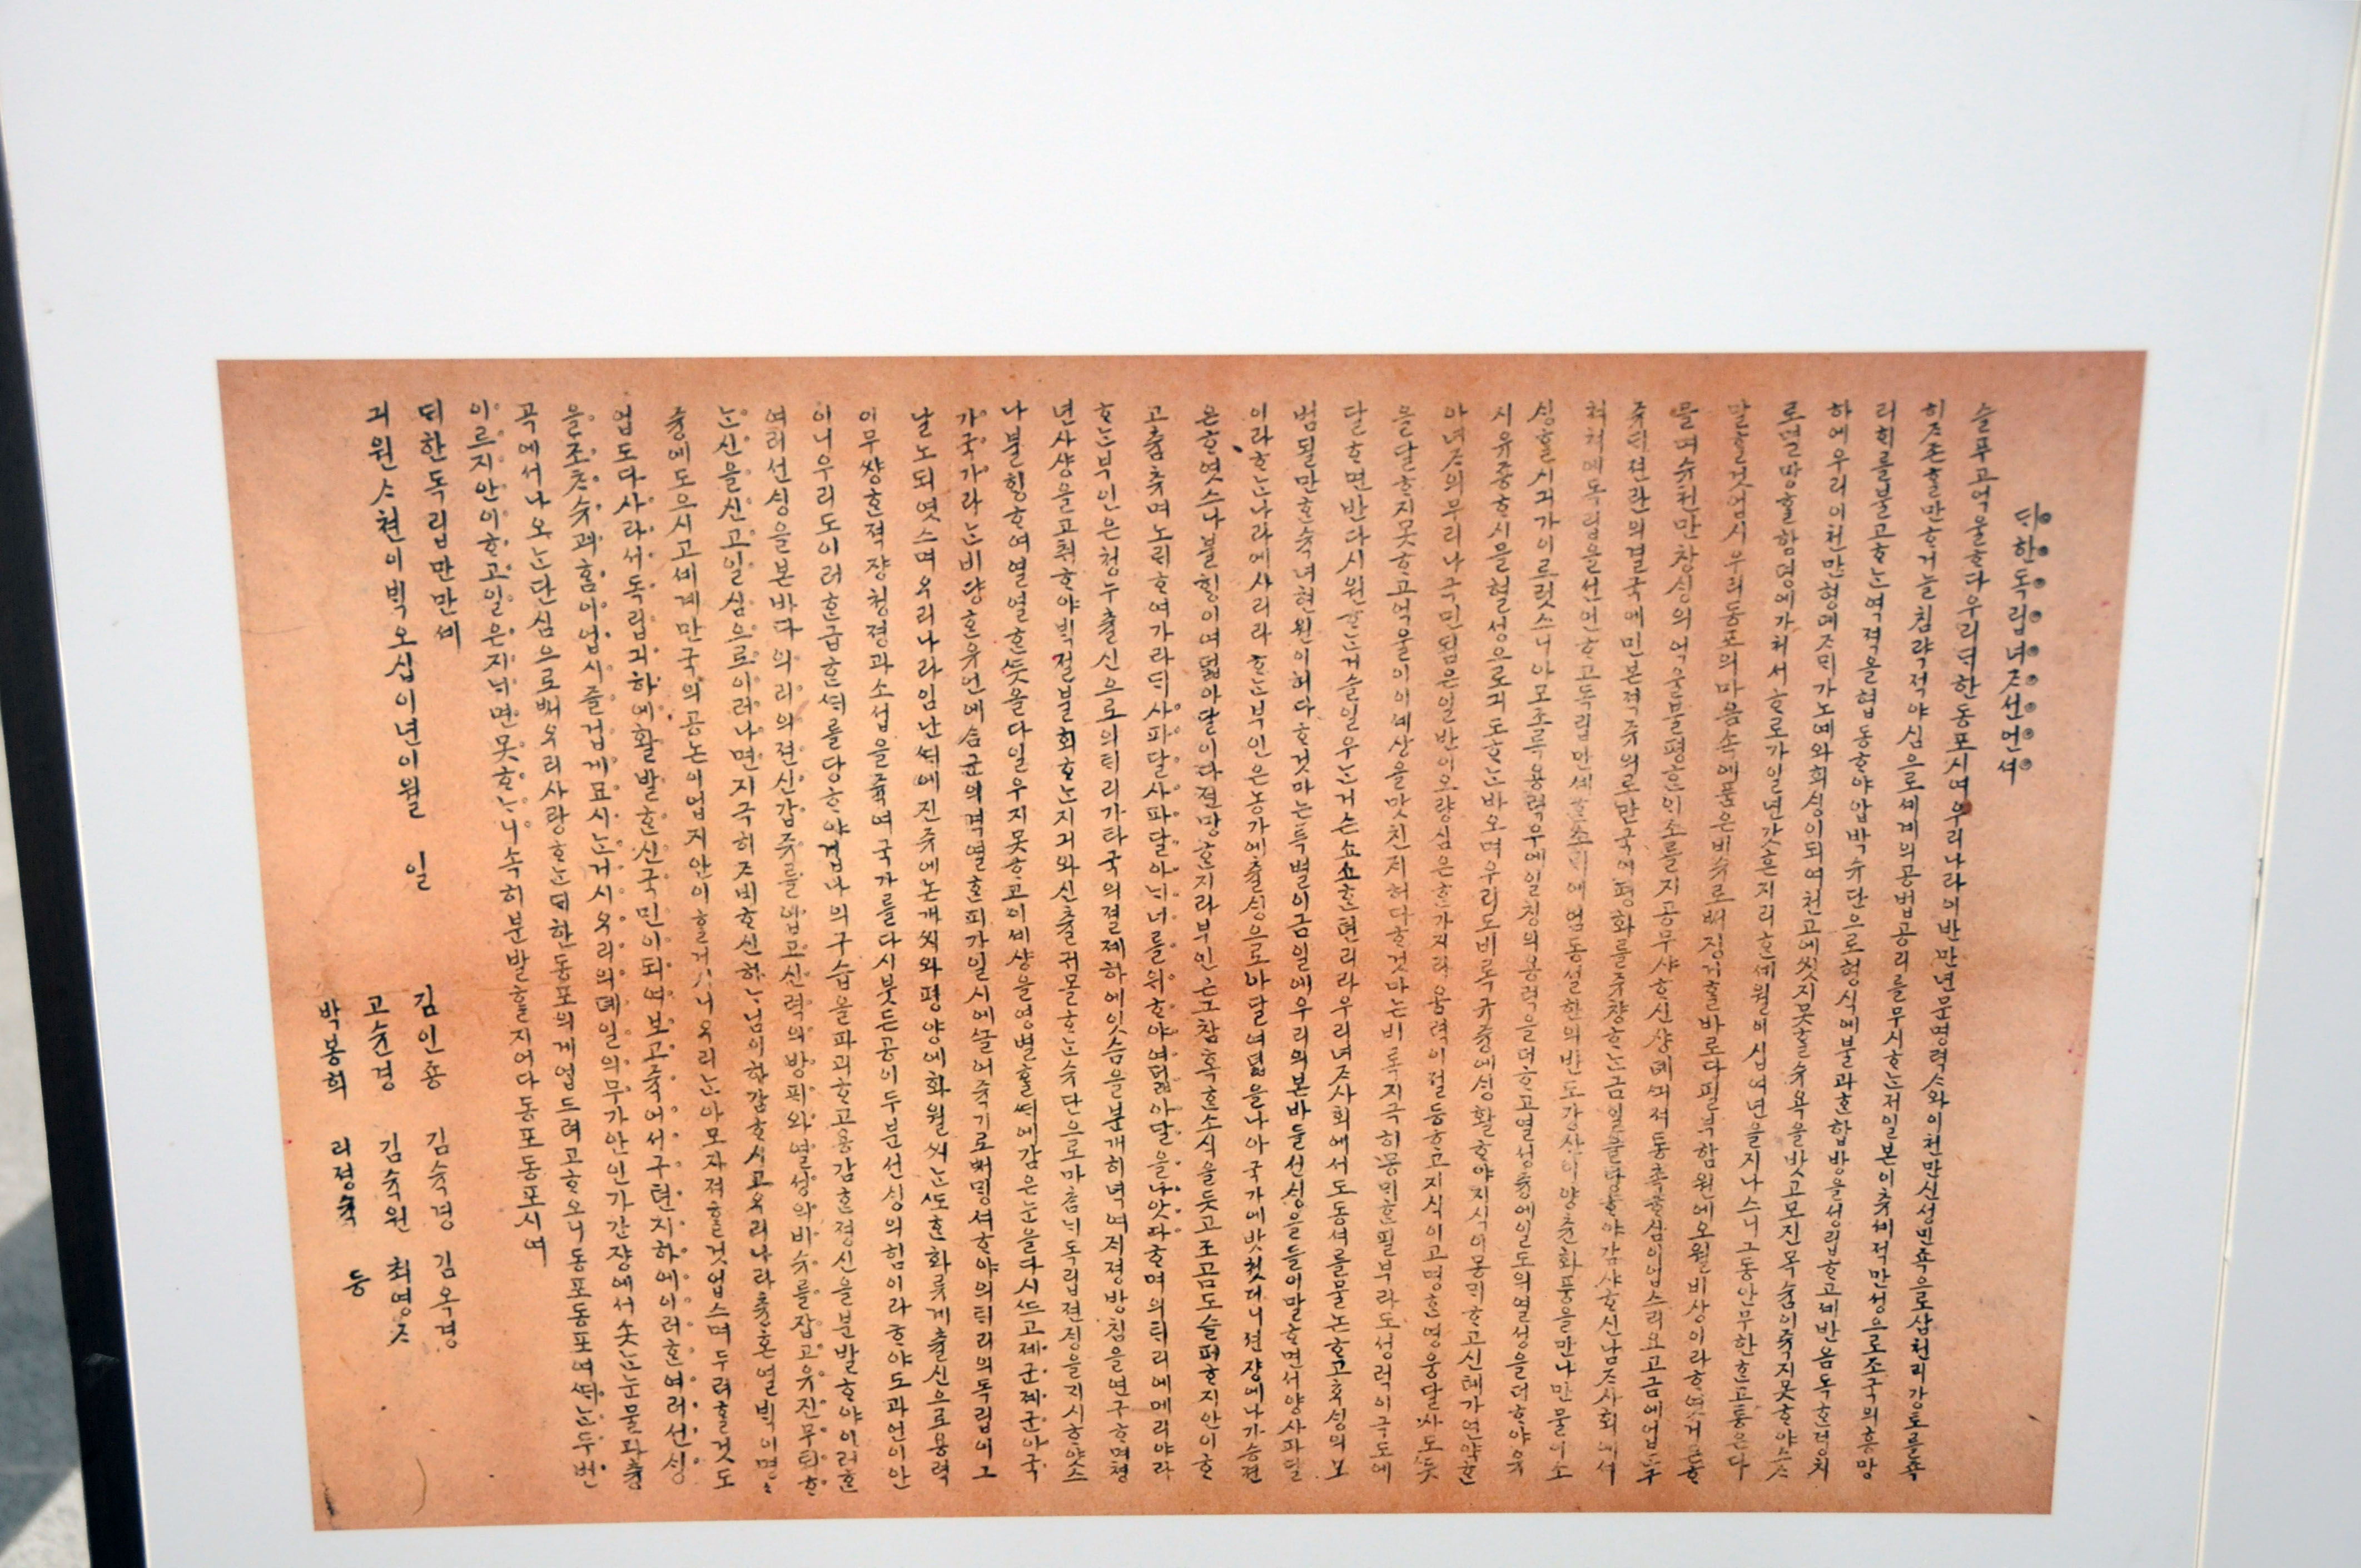 ᄃᆡ한독립녀ᄌᆞ선언셔
슬푸고억울ᄒᆞ다우리ᄃᆡ한동포시여우리나라이반만년문명력ᄉᆞ와이쳔만신셩민족으로삼쳔리강토를족
히ᄌᆞ존ᄒᆞᆯ만ᄒᆞ거늘침략젹야심으로셰계의공법공리를무시ᄒᆞᄂᆞᆫ져일본이츄셰젹만셩으로조국의흥망
리ᄒᆡ를불고ᄒᆞᄂᆞᆫ역젹을협동ᄒᆞ야압박슈단으로형식에불과ᄒᆞᆫ합방을셩립ᄒᆞ고비반음독ᄒᆞᆫ졍치
하에우리이쳔만형뎨ᄌᆞᄆᆡ가노예와희ᄉᆡᆼ이되여쳔고에씻지못ᄒᆞᆯ슈욕을밧고모진목슘이쥭지못ᄒᆞ야스ᄉᆞ
로멸망ᄒᆞᆯ함뎡에가쳐셔ᄒᆞ로가일년갓흔지리ᄒᆞᆫ셰월이시십여년을지나스니그동안무한ᄒᆞᆫ고통은다
말ᄒᆞᆯ것업시우리동포의마음속에품은비슈로ᄡᅥ징거ᄒᆞᆯ바로다필부함원에오월비상이라ᄒᆞ엿거든ᄒᆞ
물며슈쳔만창ᄉᆡᆼ의억울불평ᄒᆞᆫ이소를지공무샤ᄒᆞ신샹뎨ᄭᅦ져동쵹츙심이업스리요고금에업ᄂᆞᆫ구
쥬ᄃᆡ젼란의결국에민본젹쥬의로만국이평화를쥬챵ᄒᆞᄂᆞᆫ금일을당ᄒᆞ야감샤ᄒᆞ신남ᄌᆞ사회에셔
쳐쳐에독립을션언ᄒᆞ고독립만셰ᄒᆞᆫ소ᄅᆡ에엄동셜한의반도강산이양츈화풍을만나만물이소
ᄉᆡᆼᄒᆞᆯ시긔가이르럿스니아모조록용력우에일칭의용력을더ᄒᆞ고열셩즁에일도의열셩을더ᄒᆞ야유
시유죵ᄒᆞ시믈혈셩으로긔도ᄒᆞᄂᆞᆫ바오며우리도비록규즁에ᄉᆡᆼ활ᄒᆞ야지식이몽ᄆᆡᄒᆞ고신톄가연약ᄒᆞᆫ
아녀ᄌᆞ의무리나국민됨은일반이오량심은ᄒᆞᆫ가지라용력이졀등ᄒᆞ고지식이고명ᄒᆞᆫ영웅달사도ᄯᅳᆺ
을달ᄒᆞ지못ᄒᆞ고억울이이셰샨을맛친지허다ᄒᆞ것마는비록지극히몽ᄆᆡᄒᆞᆫ필부라도셩력이극도에
달ᄒᆞ면반다시원ᄒᆞᄂᆞᆫ거슬일우ᄂᆞᆫ거슨쇼쇼ᄒᆞᆫ텬리라우리녀ᄌᆞ사회에셔도동셔를물논ᄒᆞ고후ᄉᆡᆼ의모
범될만ᄒᆞᆫ슉녀현원이허다ᄒᆞ것마는특별이금일에우리의본바들션ᄉᆡᆼ을들어말ᄒᆞ면셔양사파달
이라ᄒᆞᄂᆞᆫ나라에사리라ᄒᆞᄂᆞᆫ부인은농가에츌ᄉᆡᆼ으로아달여덟을나아국가에밧쳣더니젼쟝에나가승젼
은ᄒᆞ엿스나불ᄒᆡᆼ이여덟아달이다젼망ᄒᆞᆫ지라부인은그참혹ᄒᆞᆫ소식을듯고조곰도슬퍼ᄒᆞ지안이ᄒᆞ
고춤츄며노ᄅᆡᄒᆞ여가라ᄃᆡ사파달사파달아ᄂᆡ너를위ᄒᆞ야여덟아달을나앗다ᄒᆞ며의ᄐᆡ리에메리야라
ᄒᆞᄂᆞᆫ부인은쳥누츌신으로의ᄐᆡ리가타국의졀졔하에잇슴을분개히녁여지졍방침을연구ᄒᆞ며쳥
년사샹을고취ᄒᆞ야ᄇᆡᆨ졀불회ᄒᆞᄂᆞᆫ지긔와신츌귀몰ᄒᆞᄂᆞᆫ슈단으로마ᄎᆞᆷᄂᆡ독립젼ᄌᆡᆼ을기시ᄒᆞ얏스
나불ᄒᆡᆼᄒᆞ여열열ᄒᆞᆫᄯᅳᆺ을다일우지못ᄒᆞ고이셰샹을영별ᄒᆞᆯᄯᅢ에감은눈을다시ᄯᅳ고졔군졔군아국
가국가라ᄂᆞᆫ비량ᄒᆞᆫ유언에슴군의격렬ᄒᆞᆫ피가일시에ᄭᅳᆯ어쥭기로ᄡᅥᄆᆡᆼ셔ᄒᆞ야의ᄐᆡ리의독립이그
날노되엿스며우리나라임난ᄯᅢ에진쥬에논개씨와평양에화월씨ᄂᆞᆫᄯᅩᄒᆞᆫ화류계츌신으로용력
이무쌍ᄒᆞᆫ젹쟝쳥졍과소섭을쥭여국가를다시붓든공이두분션ᄉᆡᆼ의힘이라ᄒᆞ야도과언이안
이니우리도이러ᄒᆞᆫ급ᄒᆞᆫᄯᅢ를당ᄒᆞ야겁나의구습을파괴ᄒᆞ고용감ᄒᆞᆫ졍신을분발ᄒᆞ야이러ᄒᆞᆫ
여러션ᄉᆡᆼ을본바다의리의젼신갑쥬를닙고신력의방패와열셩의비슈를잡고유진무퇴ᄒᆞ
ᄂᆞᆫ신을신고일심으로이러나면지극히ᄌᆞ비ᄒᆞ신하ᄂᆞ님이하감ᄒᆞ시고우리나라츙혼열ᄇᆡᆨ이명
즁에도으시고셰계만국의공논이업지안이ᄒᆞᆯ거시니우리ᄂᆞᆫ아모쥬져ᄒᆞᆯ것업스며두려ᄒᆞᆯ것도
업도다사라셔독립긔하에활발ᄒᆞᆫ신국민이되여보고쥭어셔구텬지하에이러ᄒᆞᆫ여러션ᄉᆡᆼ
을조ᄎᆞ슈괴홈이업시즐겁게뫼시ᄂᆞᆫ거시우리의뎨일의무가안인가간쟝에셔솟ᄂᆞᆫ눈물과츙
곡에셔나오ᄂᆞᆫ단심으로ᄡᅥ우리사랑ᄒᆞᄂᆞᆫᄃᆡ한동포의게업드려고ᄒᆞ오니동포동포여ᄯᅢᄂᆞᆫ두번
이르지안이ᄒᆞ고일은지ᄂᆡ면못ᄒᆞᄂᆞ니속히분발ᄒᆞᆯ지어다동포동포시여
ᄃᆡ한독립만만셰
긔원ᄉᆞ쳔이ᄇᆡᆨ오십이년이월 일
김인죵 김슉경 김옥경
고슌경 김슉원 최영ᄌᆞ
박봉희 리졍슉 등